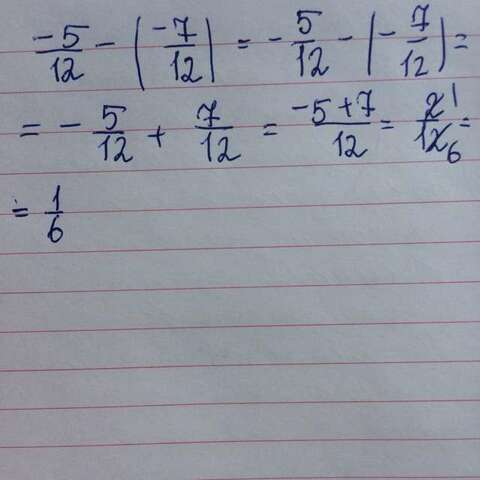 -5/12 - (-7/12) = -5/12 - (-7/12) =
= -5/12 + 7/12 = (-5+7)/12 = 2 1/12 6 =
= 1/6